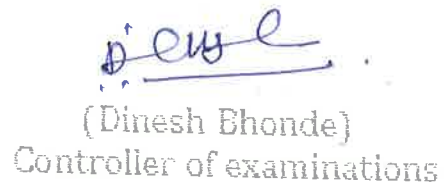 (Dinesh Bhonde)
Controller of examinations